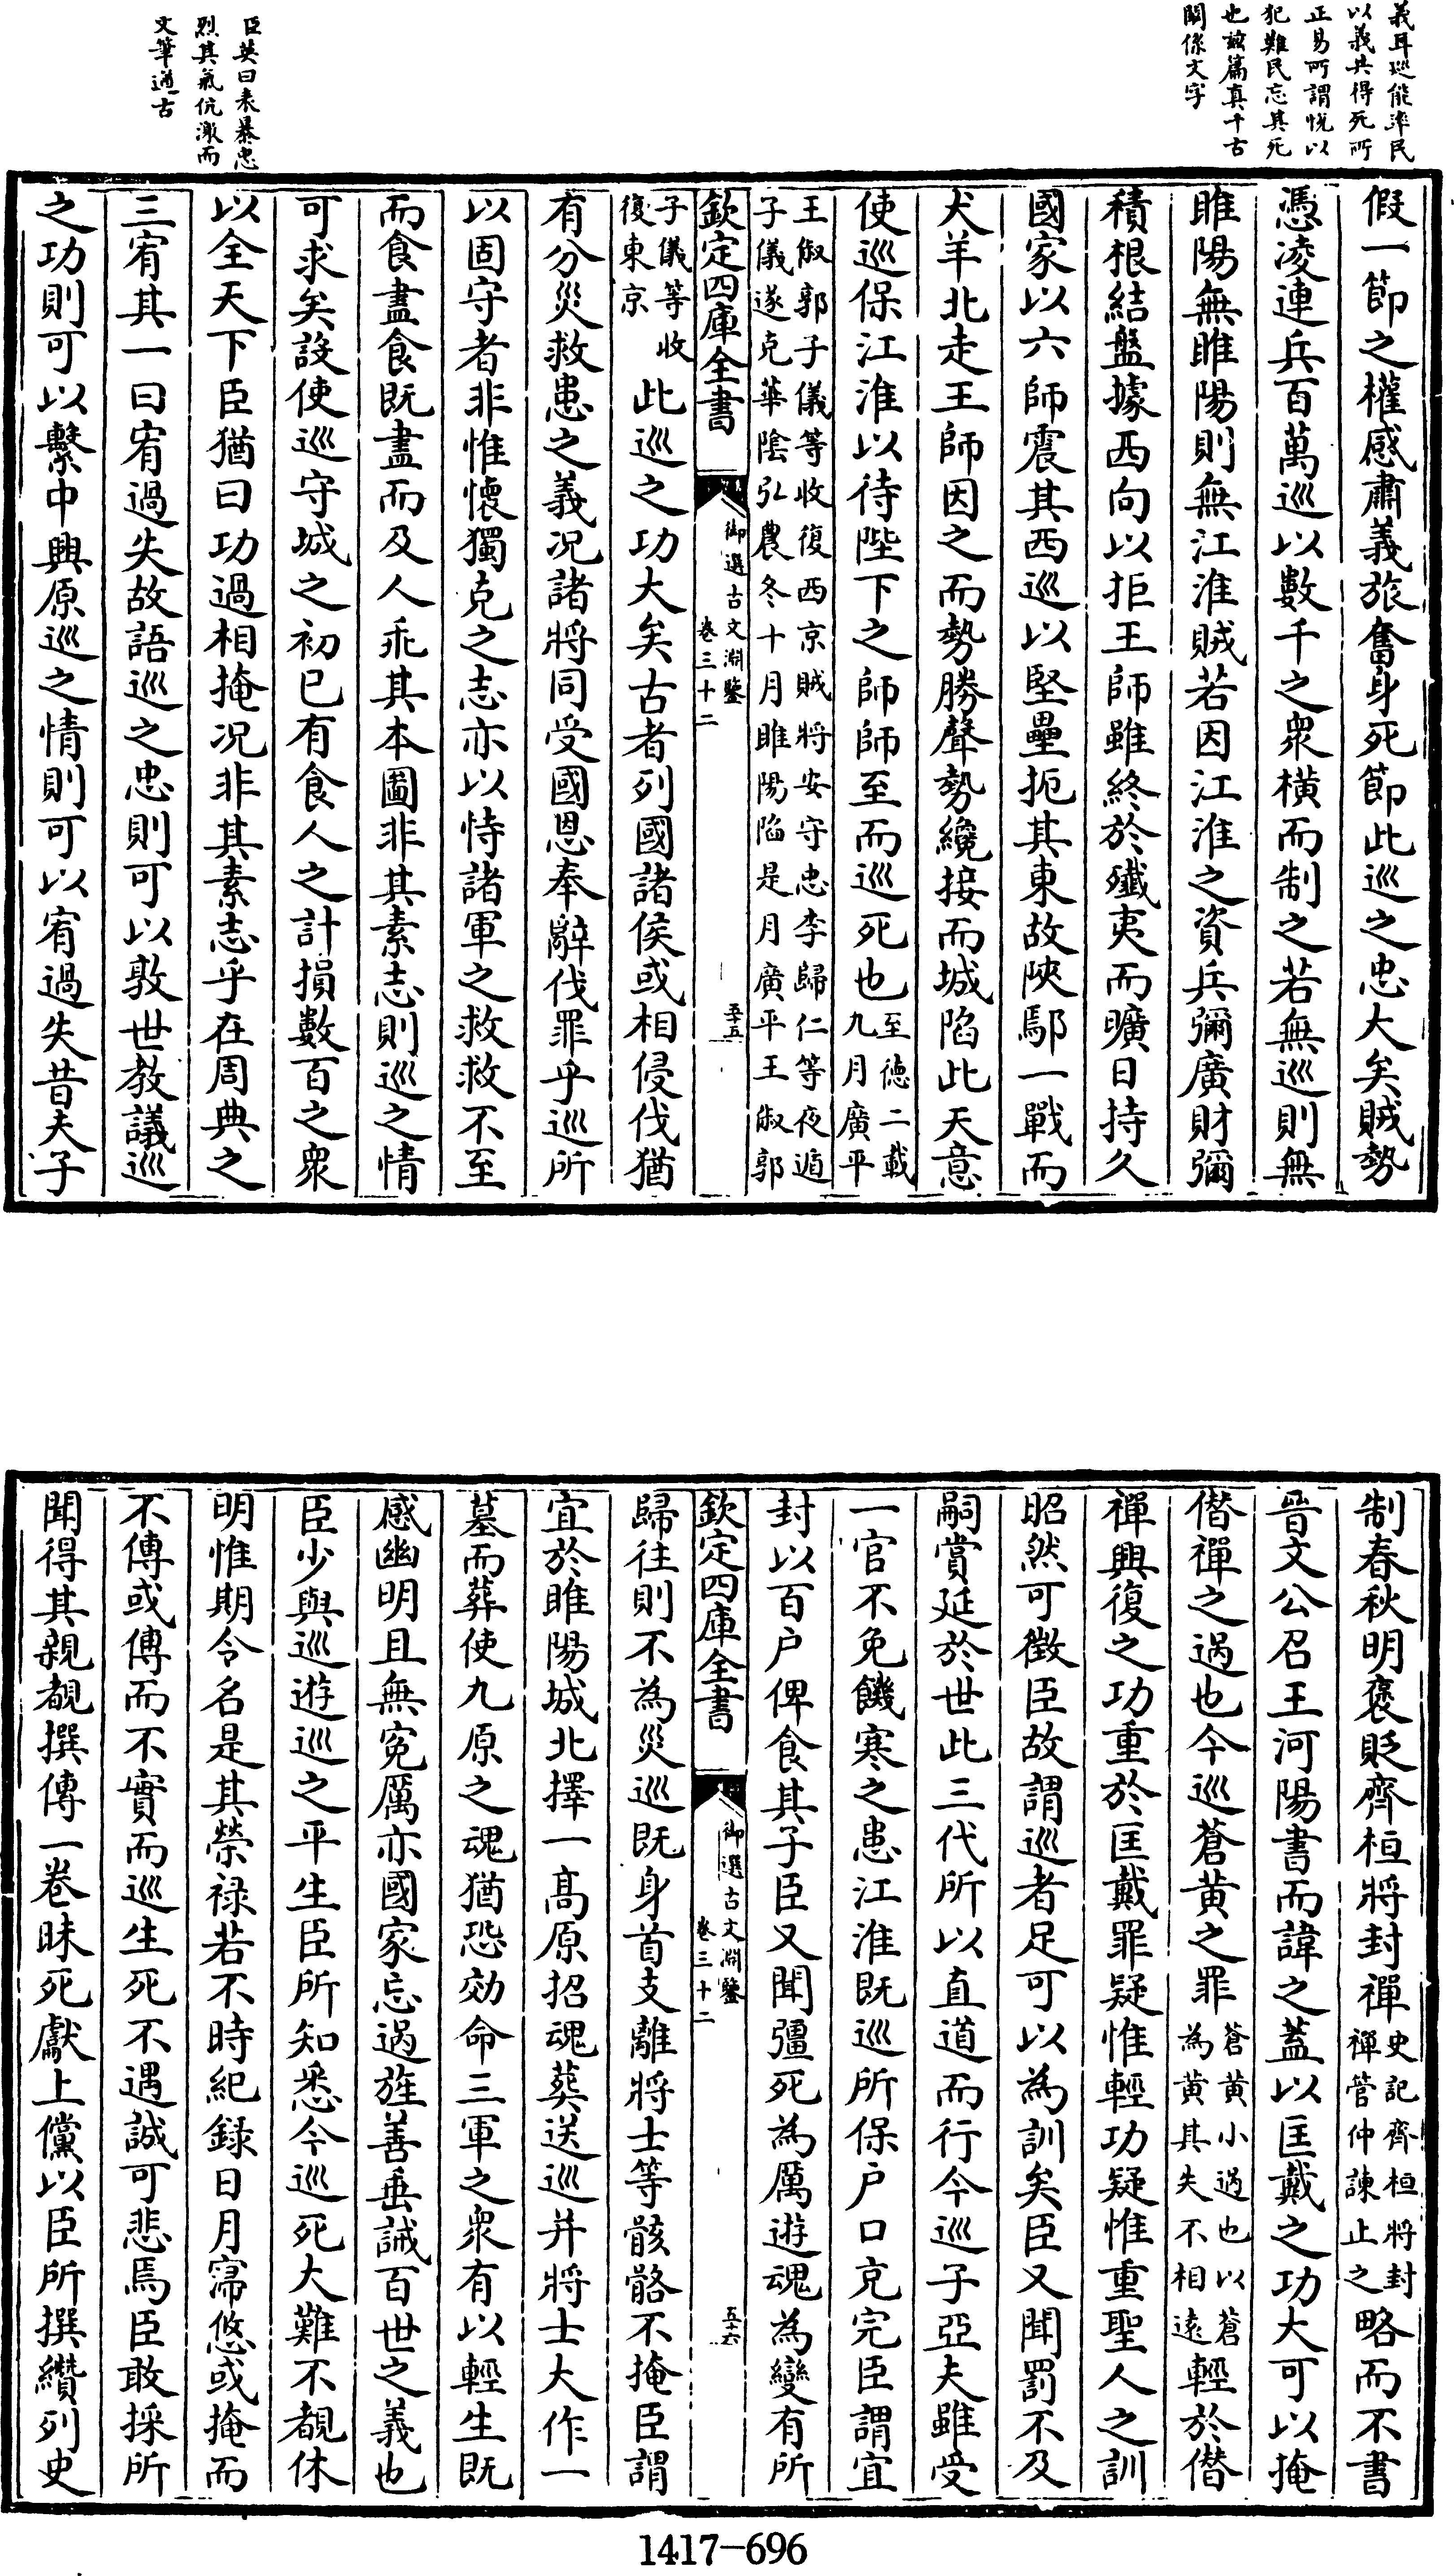 義耳巡能率民
以義共得死所
正易所謂悅以
犯難民忘其死
也兹篇真千古
關係文字
臣英曰表暴忠
烈其氣伉激而
文筆遒古
假一節之權感肅義旅奮身死節此巡之忠大矣賊勢
憑凌連兵百萬巡以數千之衆横而制之若無巡則無
睢陽無睢陽則無江淮賊若因江淮之資兵彌廣財彌
積根結盤據西向以拒王師雖終於殲夷而曠日持久
國家以六師震其西巡以堅壘扼其東故陜鄢一戰而
犬羊北走王師因之而勢勝聲勢纔接而城陷此天意
使巡保江淮以待陛下之師師至而巡死也至德二載
九月廣平
王俶郭子儀等收復西京賊將安守忠李歸仁等夜遁
子儀遂克華陰弘農冬十月睢陽陷是月廣平王俶郭
欽定四庫全書
御選古文淵鑒
卷三十二
五十五
子儀等收
復東京
此巡之功大矣古者列國諸侯或相侵伐猶
有分災救患之義况諸將同受國恩奉辭伐罪乎巡所
以固守者非惟懷獨克之志亦以恃諸軍之救救不至
而食盡食既盡而及人乖其本圖非其素志則巡之情
可求矣設使巡守城之初已有食人之計損數百之衆
以全天下臣猶曰功過相掩况非其素志乎在周典之
三宥其一曰宥過失故語巡之忠則可以敦世教議巡
之功則可以繫中興原巡之情則可以宥過失昔夫子
制春秋明褒貶齊桓將封禪史記齊桓將封
禪管仲諫止之略而不書
晉文公召王河陽書而諱之蓋以匡戴之功大可以掩
僭禪之過也今巡蒼黄之罪蒼黄小過也以蒼
為黄其失不相遠輕於僭
禪興復之功重於匡戴罪疑惟輕功疑惟重聖人之訓
昭然可徵臣故謂巡者足可以為訓矣臣又聞罰不及
嗣賞延於世此三代所以直道而行今巡子亞夫雖受
一官不免饑寒之患江淮既巡所保户口克完臣謂宜
封以百户俾食其子臣又聞彊死為厲遊魂為變有所
欽定四庫全書
御選古文淵鑒
卷三十二
五十六
歸往則不為災巡既身首支離將士等骸骼不掩臣謂
宜於睢陽城北擇一髙原招魂葬送巡并將士大作一
墓而葬使九原之魂猶恐効命三軍之衆有以輕生既
感幽明且無寃厲亦國家忘過旌善垂誡百世之義也
臣少與巡遊巡之平生臣所知悉今巡死大難不覩休
明惟期令名是其榮禄若不時紀録日月寖悠或掩而
不傳或傳而不實而巡生死不遇誠可悲焉臣敢採所
聞得其親覩撰傳一巻昧死獻上儻以臣所撰纘列史
1417-696